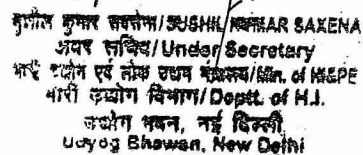 सुशील कुमार सक्सेना/SUSHIL KUMAR SAXENA
अवर सचिव/Under Secretary
भारी उद्योग एवं लोक उद्यम मंत्रालय/Min. of HI&PE
भारी उद्योग विभाग/Deptt. of H.I.
उद्योग भवन, नई दिल्ली
Udyog Bhawan, New Delhi